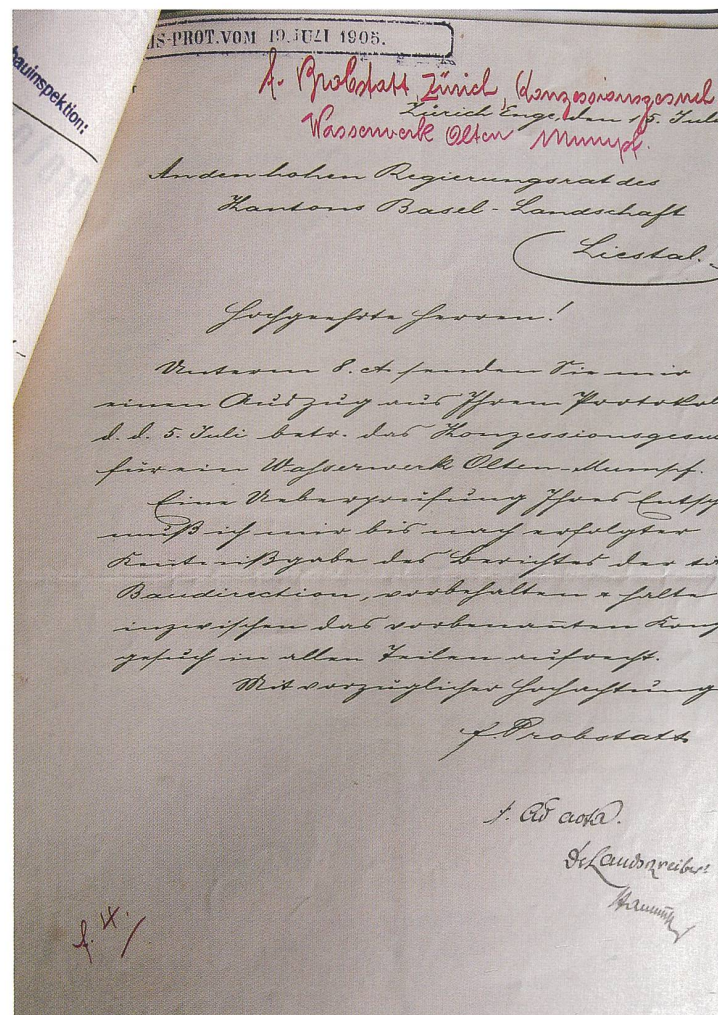 bauinspektion:
IS-PROT. VOM 19. JULI 1905.
f. Probstatt, Zürich, Konzessionsgesuch
Wasserwerk Olten-Mumpf.
Zürich Enge, den 15. Juli
An den hohen Regierungsrat des
Kantons Basel-Landschaft
Liestal.-
Hochgeehrte Herren!
Unterm 8. ct. senden Sie mir
einen Auszug aus Ihrem Protokol
d. d. 5. Juli betr. das Konzessionsgesu
für ein Wasserwerk Olten-Mumpf.
Eine Ueberprüfung Ihres Entsch
muß ich mir bis nach erfolgter
Kenntnißgabe des Berichtes der tit
Baudirection, vorbehalten & halte
inzwischen das vorbenannten Konz
gesuch in allen Teilen aufrecht.
Mit vorzüglicher Hochachtung
f. Probstatt
Ad acta.
Landschreiber:
f. 4.